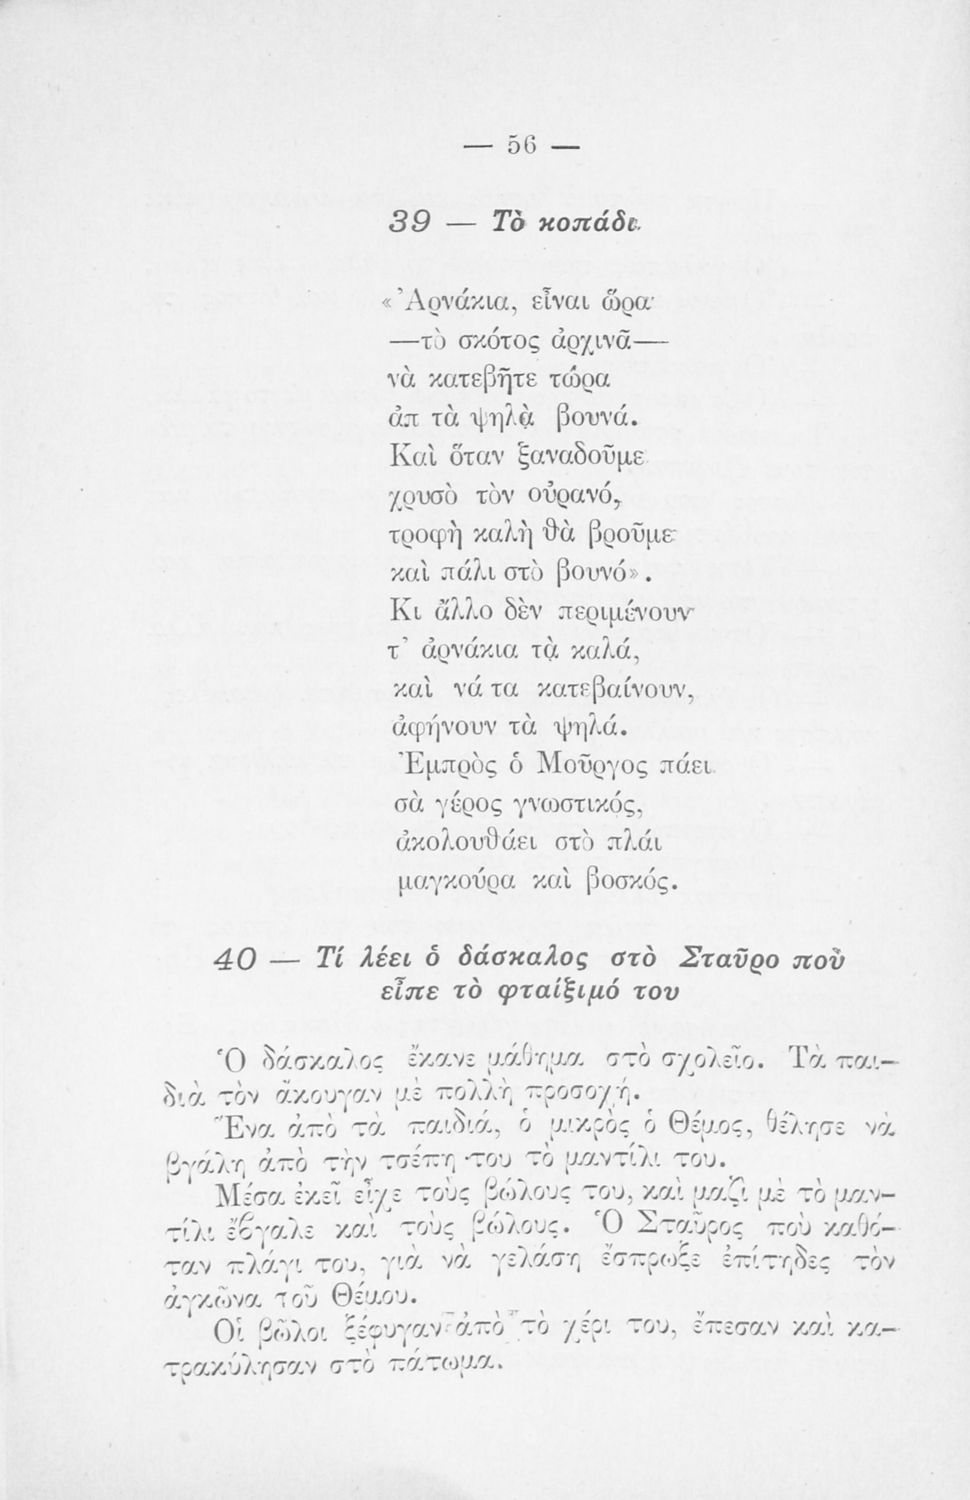 — 56 —
39 — Τὸ κοπάδι
«Ἀρνάκια, εἶναι ὥρα
—τὸ σκότος ἀρχινᾶ—
νὰ κατεβῆτε τώρα
ἀπ τὰ ψηλὰ βουνά.
Καὶ ὅταν ξαναδοῦμε
χρυσὸ τὸν οὐρανό,
τροφὴ καλὴ θὰ βροῦμε
καὶ πάλι στὸ βουνό».
Κι ἄλλο δὲν περιμένουν
τ’ ἀρνάκια τὰ καλά,
καὶ νά τα κατεβαίνουν,
ἀφήνουν τὰ ψηλά.
Ἐμπρὸς ὁ Μοῦργος πάει
σὰ γέρος γνωστικός,
ἀκολουθάει στὸ πλάι
μαγκούρα καὶ βοσκός.
40 — Τί λέει ὁ δάσκαλος στὸ Σταῦρο ποὺ
εἶπε τὸ φταίξιμό του
Ὁ δάσκαλος ἔκανε μάθημα στὸ σχολεῖο. Τὰ παι-
διὰ τὸν ἄκουγαν μὲ πολλὴ προσοχή.
Ἕνα ἀπὸ τὰ παιδιά, ὁ μικρὸς ὁ Θέμος, θέλησε νὰ
βγάλῃ ἀπὸ τὴν τσέπη του τὸ μαντίλι του.
Μέσα ἐκεῖ εἶχε τοὺς βώλους του, καὶ μαζὶ μὲ τὸ μαν-
τίλι ἔβγαλε καὶ τοὺς βώλους. Ὁ Σταῦρος ποὺ καθό-
ταν πλάγι του, γιὰ νὰ γελάσῃ ἔσπρωξε ἐπίτηδες τὸν
ἀγκῶνα τοῦ Θέμου.
Οἱ βῶλοι ξέφυγαν ἀπὸ τὸ χέρι του, ἔπεσαν καὶ κα-
τρακύλησαν στὸ πάτωμα.